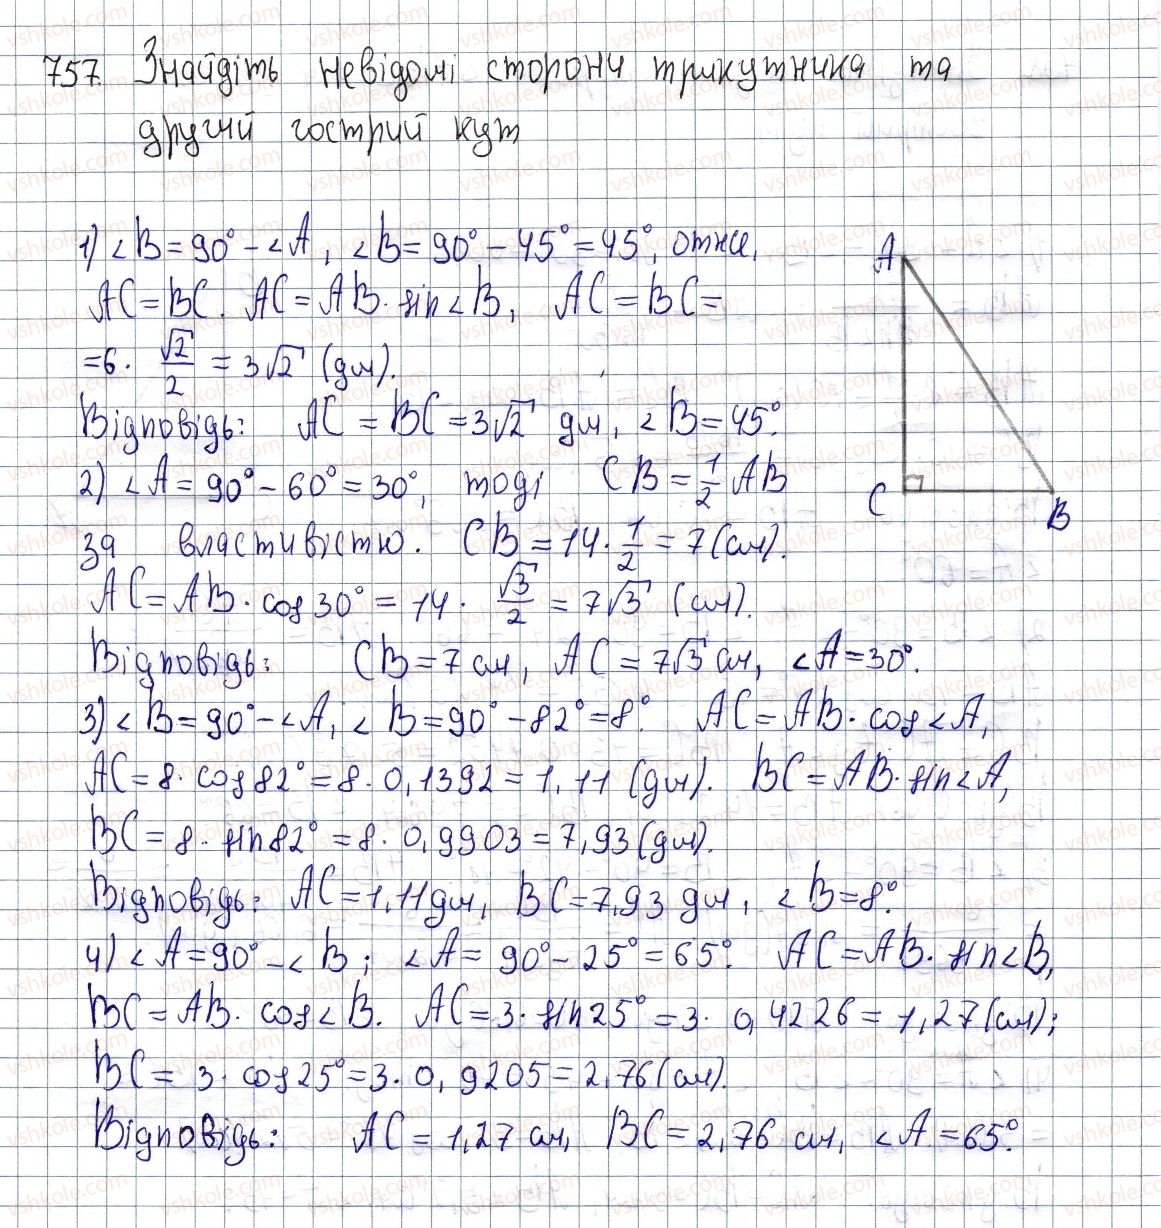 757. Знайдіть невідомі сторони трикутника та
другий гострий кут
1) ∠B = 90° - ∠A, ∠B = 90° - 45° = 45°, отже,
AC = BC. AC = AB · sin∠B, AC = BC =
= 6 · √2/2 = 3√2 (дм).
Відповідь: AC = BC = 3√2 дм, ∠B = 45°.
2) ∠A = 90° - 60° = 30°, тоді CB = 1/2 AB
за властивістю. CB = 14 · 1/2 = 7 (см).
AC = AB · cos 30° = 14 · √3/2 = 7√3 (см).
Відповідь: CB = 7 см, AC = 7√3 см, ∠A = 30°.
3) ∠B = 90° - ∠A, ∠B = 90° - 82° = 8°. AC = AB · cos∠A,
AC = 8 · cos 82° = 8 · 0,1392 = 1,11 (дм). BC = AB · sin∠A,
BC = 8 · sin 82° = 8 · 0,9903 = 7,93 (дм).
Відповідь: AC = 1,11 дм, BC = 7,93 дм, ∠B = 8°.
4) ∠A = 90° - ∠B; ∠A = 90° - 25° = 65°. AC = AB · sin∠B,
BC = AB · cos∠B. AC = 3 · sin 25° = 3 · 0,4226 = 1,27 (см);
BC = 3 · cos 25° = 3 · 0,9205 = 2,76 (см).
Відповідь: AC = 1,27 см, BC = 2,76 см, ∠A = 65°.
A
C
B
vshkole.com